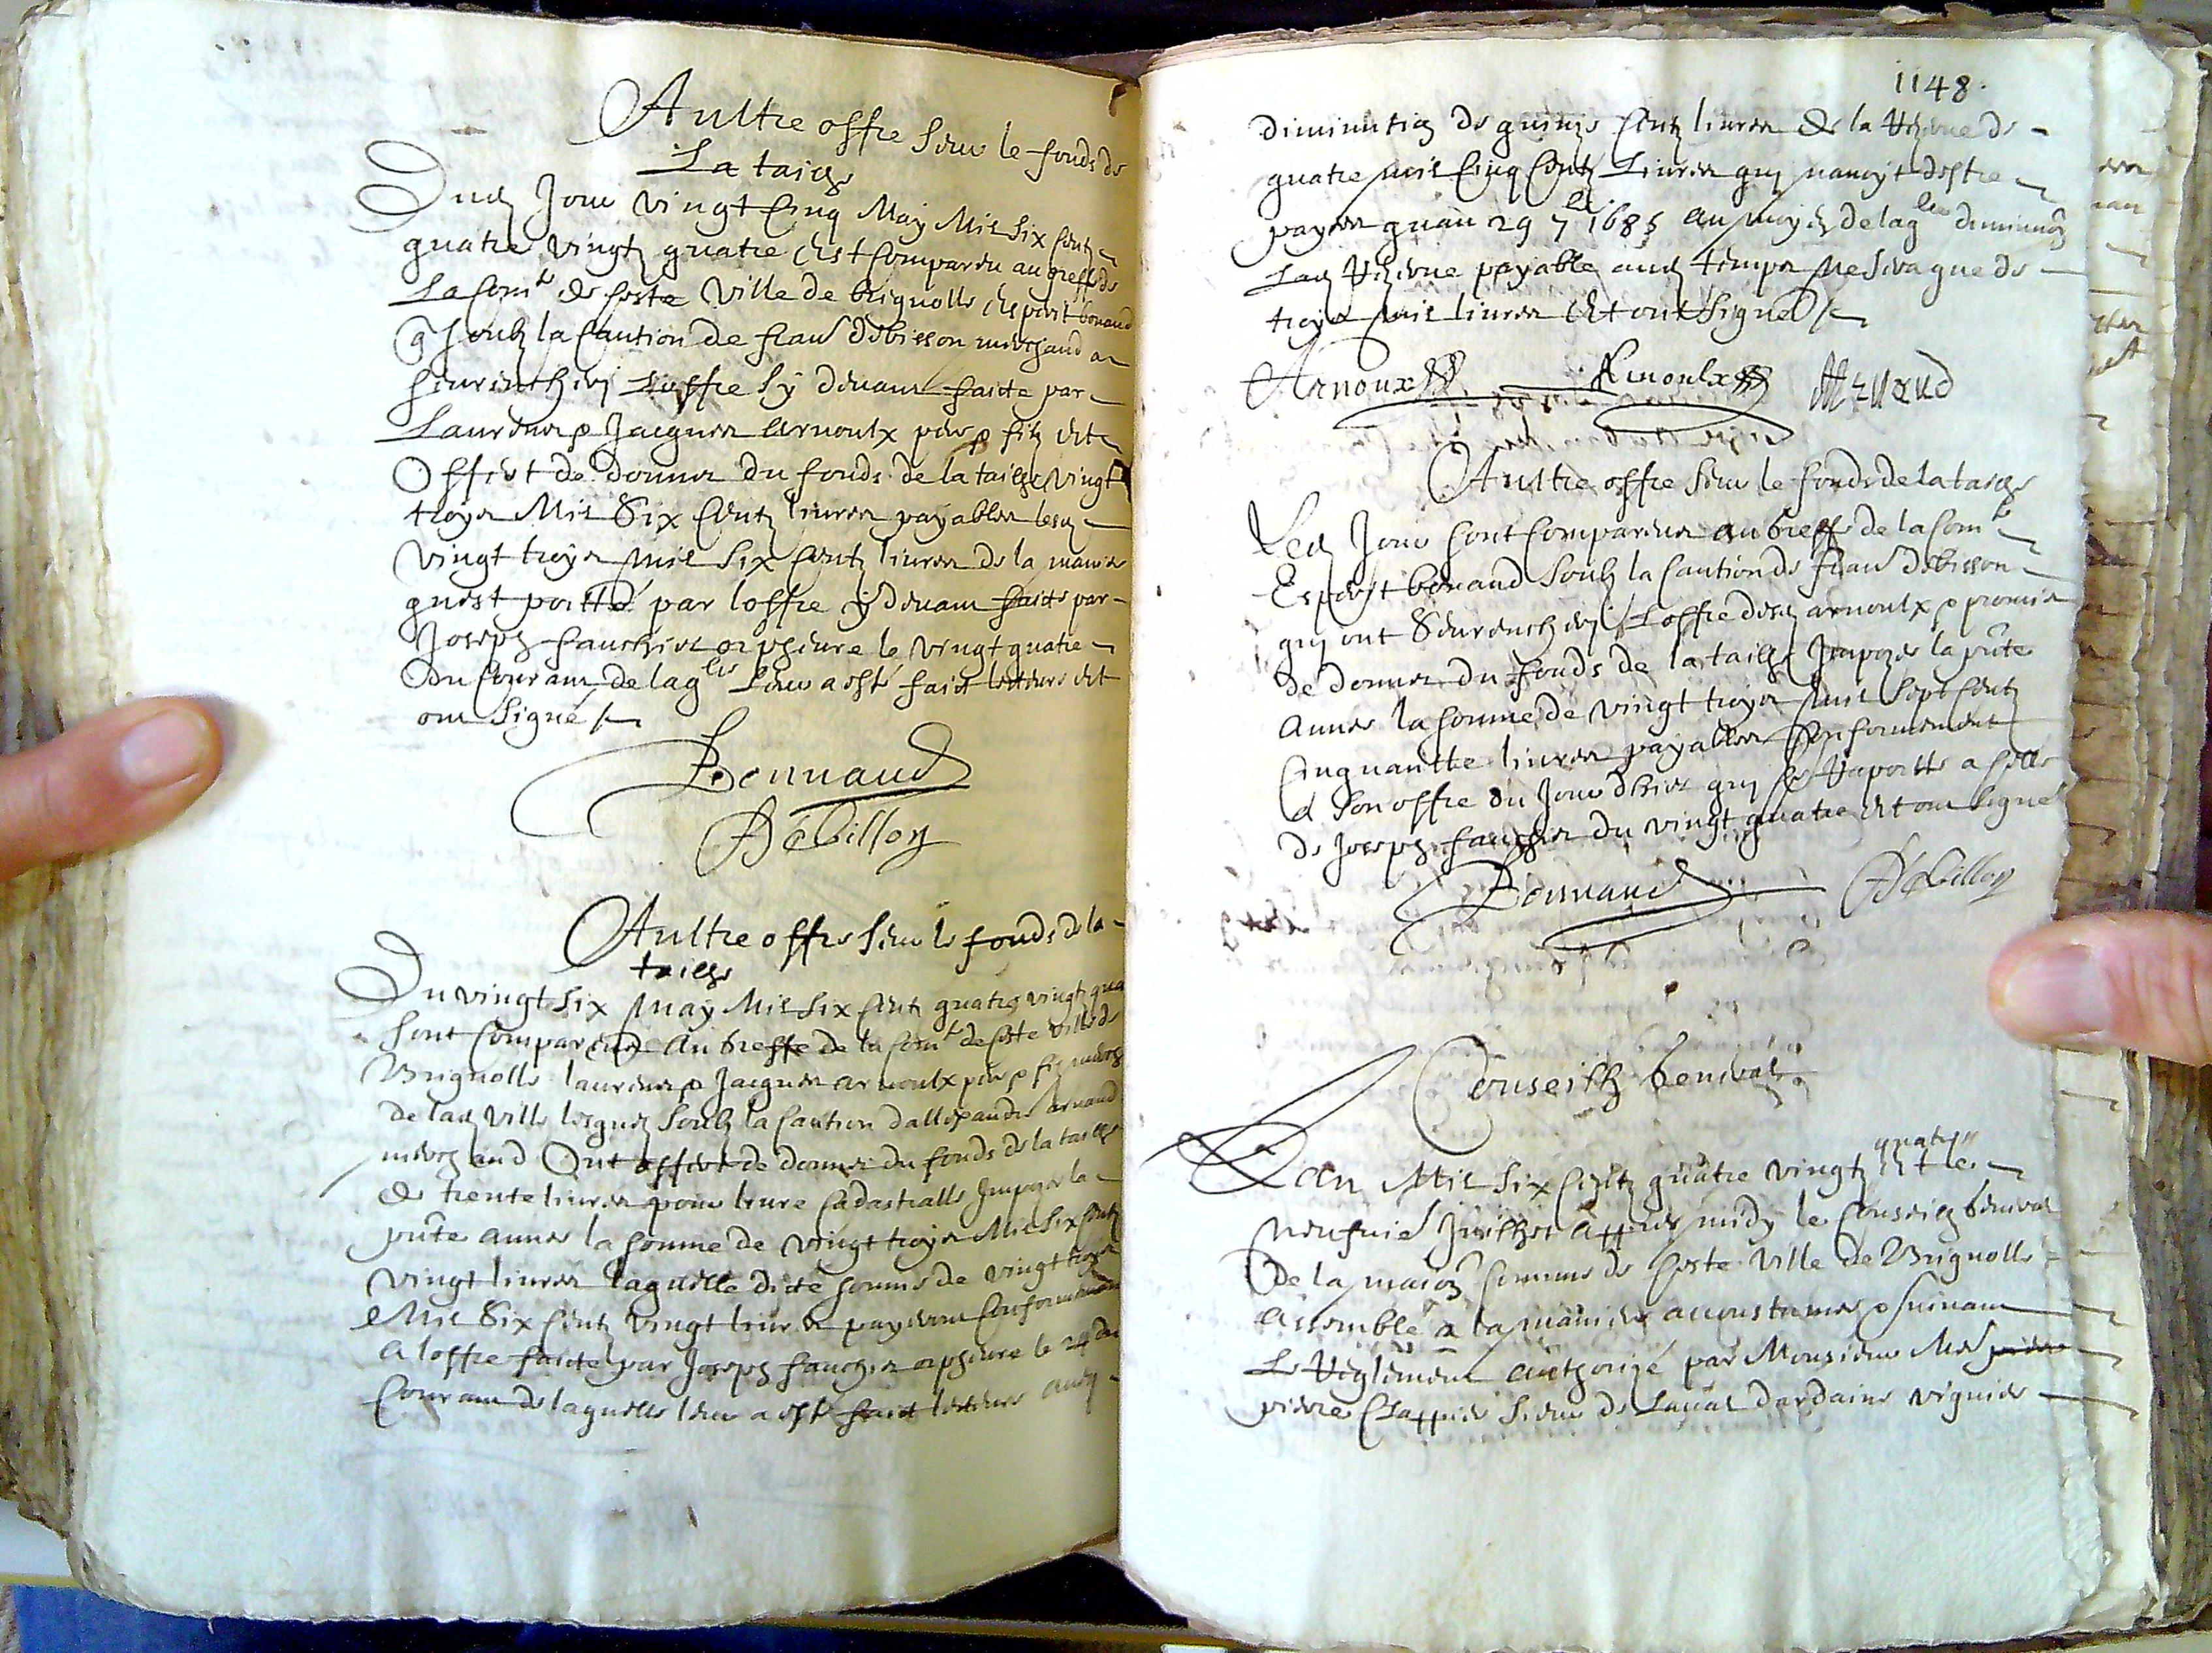 Aultre offre sur le fonds de
La tailhe
Dud Jour vingt cinq May Mil six centz
quatre vingtz quatre est comparu au greffe de
La Comté de ceste Ville de brignolle esperit bonaud
q soubz la caution de flau debisson marchand a
surenchery L'offre sy devant faicte par
Laurens & Jacques Arnoulx pere & filz et
Offert de donner du fonds de la tailhe vingt
troys Mil Six Centz livres payables lesd
vingt troys mil six centz livres de la maniere
quest portté par loffre sy devant faicte par
Joseph fauchier orpheuvre le vingt quatre
du couram de laqlle Leur a esté faict lecteure et
ont Signé
Bonnaud
Débisson
Aultre offre sur le fonds de la
tailhe
Du vingt six May Mil six centz quatre vingtz qua
Sont Comparus Au greffe de la Comté de ceste ville de
Brignolle laurens & Jacques arnoulx pere & fiz march
de lad Ville lesquelz soubz la caution dallexandre arnaud
marchand Ont offert de donner du fonds de la tailhe
de trente livres pour livre Cadastralle Impozée la
pnte année la somme de vingt troys Mil six centz
vingt livres laquelle dicte somme de vingt troys
Mil Six Centz vingt livres payeront Conformement
A loffre faicte par Joseph fauchier orpheuvre le 24 du
Couram de laquelle leur a esté faict lecteure aveq
1148.
diminution de quinze Centz livres de la rezerve de
quatre mil Cinq Centz Livres quy navoyt destre
payée quau 29 7bre 1685 au moyen de laqlle diminuon
Lad rezerve payable aud temps ne sera que de
troys mil livres Et ont signé
Arnoux Arnoulx Arnaud
Aultre offre sur le fonds de la tailhe
Led Jour sont comparus au greffe de la Comté
Esperit bonaud Soubz la Caution de flau debisson
quy ont Surenchery L'offre desd arnoulx & promis
de donner du fonds de la tailhe Impozée la pnte
année la somme de vingt troys mil sept centz
Cinquantte livres payables Conformement
a son offre du Jour dhier quy se raportte a celle
de Joseph fauchier du vingt quatre et ont signé
Bonnaud Débisson
Conseilh General
Lan Mil Six Centz quatre vingtz quatre Et le
neufvie Juilhet appres midy le Conseilh General
De la maison Commune de Ceste Ville de Brignolle
Assemblé a la maniere accoustumée & suivant
Le Reglement authorizé par Monsieur Me
pierre Clappier Sieur de Laval dardaine viguier